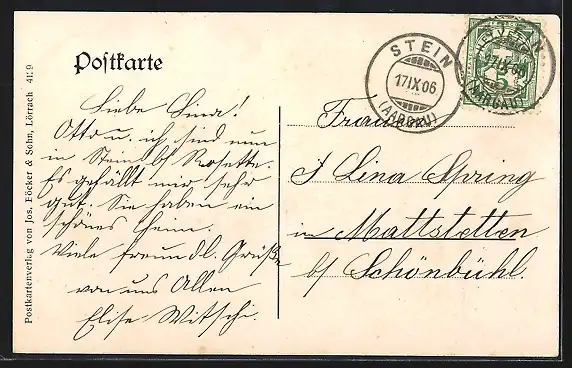 Postkarte
Liebe Lina!
Otto u. ich sind nun
in Stein bf Rosette.
Es gefällt mir sehr
gut. Sie haben ein
schönes Heim.
Viele freundl. Grüße
von uns Allen
Elise Witschi.
STEIN
17IX06
(AARGAU)
HELVETIA
STEIN
17IX06
(AARGAU)
Frau
Lina Spring
in Mattstetten
b/ Schönbühl.
Postkartenverlag von Jos. Föcker & Sohn, Lörrach 4119